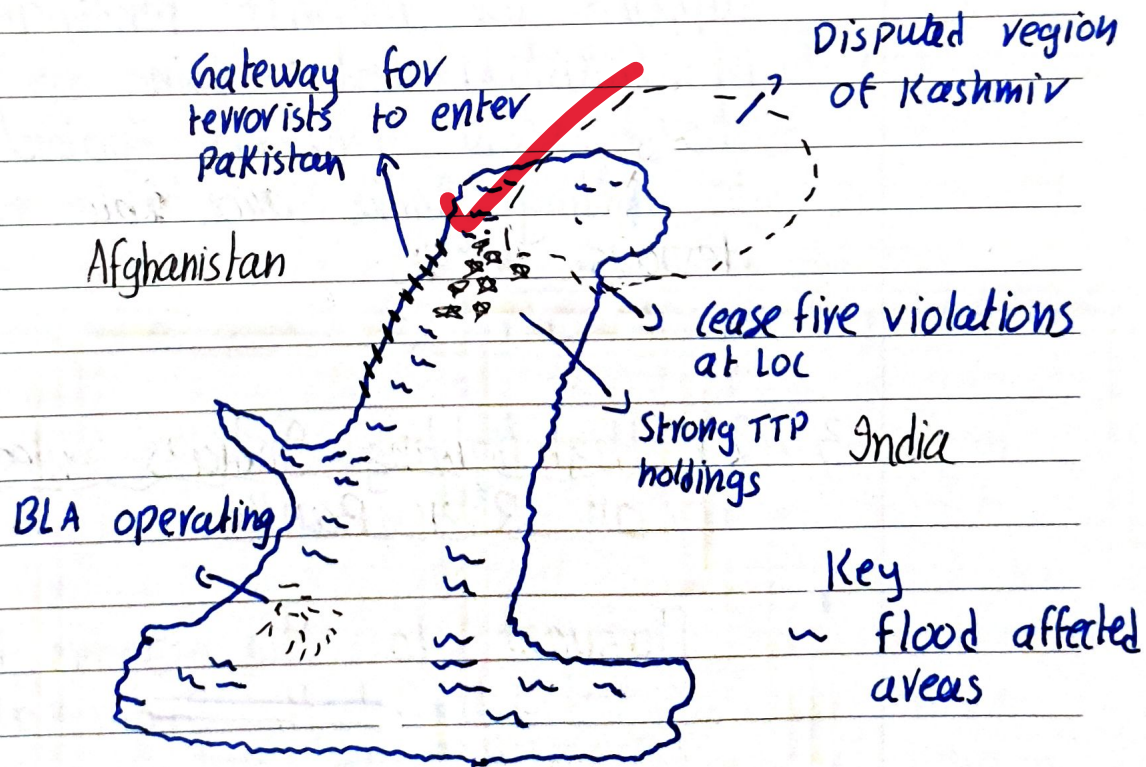 Gateway for
terrorists to enter
Pakistan
Disputed region
of Kashmir
Afghanistan
Cease fire violations
at LOC
Strong TTP
holdings
India
BLA operating
Key
~ flood affected
areas